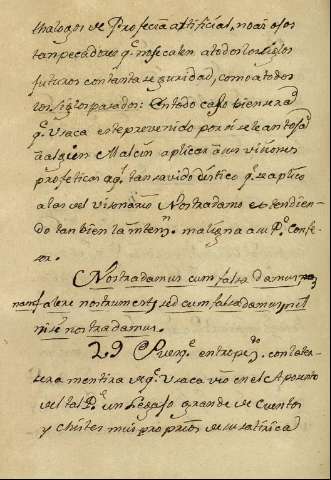 thalogos de Profecia artificial, no años
tan pecadores q.e no se calen a todos los siglos
futuros con tanta seguridad, como a todos
los siglos pasados: En todo caso bien será
q.e Vraca esté prevenido por si se le antoja
a algun Malcin aplicar a sus visiones
profeticas aq.l tan savido distico q.e se aplicó
a las del visionario Nostradamo estendien-
do tan bien la inten.n maligna a su P.e Confe-
sor.
Nostradamus cum falsa damus,
nam fallere nostrum est, sed cum falsa damus, nil
nisi nostra damus.
29 Pues q.e entrepe con la ter-
sera mentira de q.e Vraca vio en el Aposento
del tal P.e un Legajo grande de Cuentos
y chistes mui proprios de su satirica